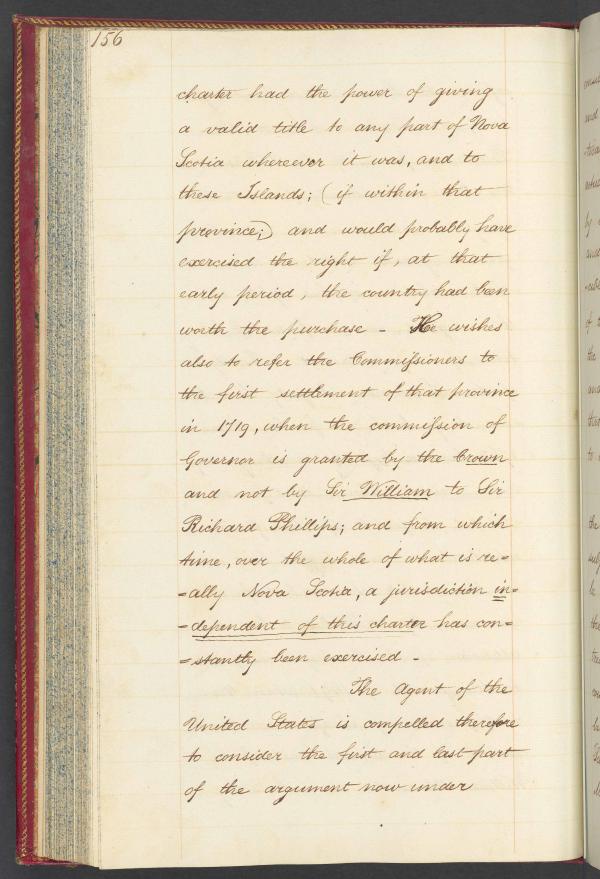 156
charter had the power of giving
a valid title to any part of Nova
Scotia whereever it was, and to
these Islands; (if within that
province;) and would probably have
exercised the right if, at that
early period, the country had been
worth the purchase - He wishes
also to refer the Commissioners to
the first settlement of that province
in 1719, when the commission of
Governor is granted by the Crown
and not by Sir William to Sir
Richard Phillips; and from which
time, over the whole of what is re=
=ally Nova Scotia, a jurisdiction in=
=dependent of this charter has con=
=stantly been exercised -
The Agent of the
United States is compelled therefore
to consider the first and last part
of the argument now under